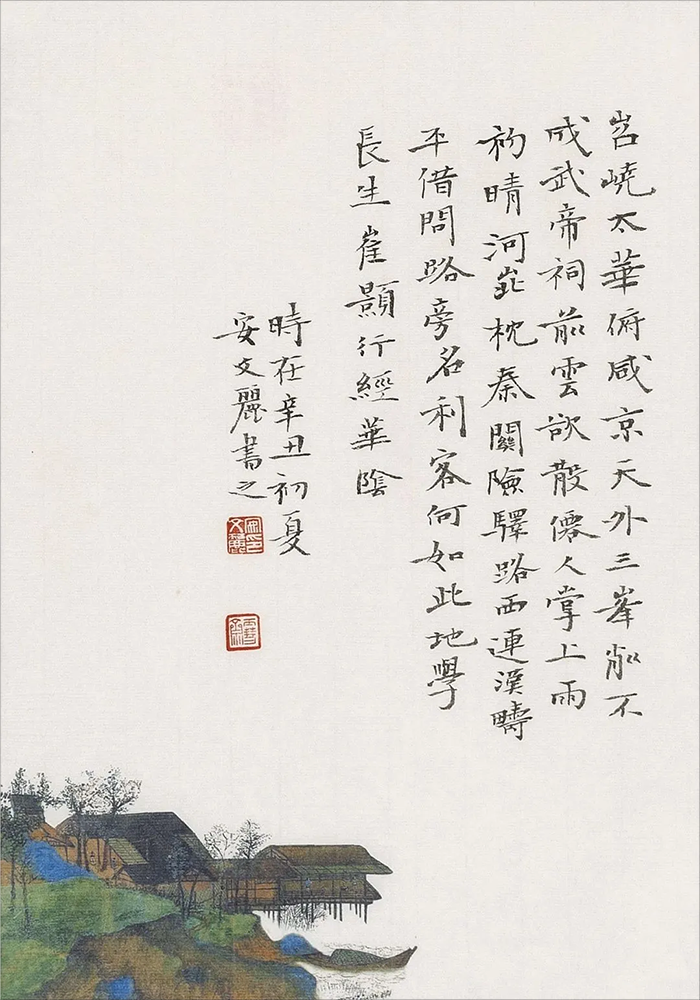 岧嶢太華俯咸京天外三峯削不
成武帝祠前雲欲散僊人掌上雨
初晴河山北枕秦關險驛路西連漢疇
平借問路旁名利客何如此地學
長生崔顥行經華陰
時在辛丑初夏
安文麗書之
安文麗印